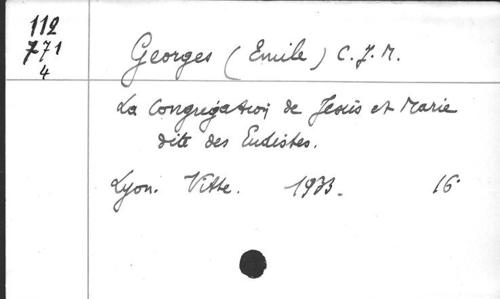 112
771
4
Georges (Emile) C.J.M.
La Congrégation de Jesus et Marie
dite des Eudistes.
Lyon. Vitte. 1933. 16°